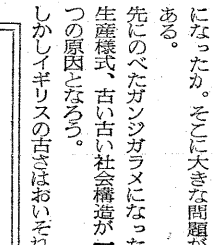 になったか。そこに大きな問題が
ある。
先にのべたガンジガラメになった
生産様式、古い古い社会構造が一
つの原因となろう。
しかしイギリスの古さはおいそれ